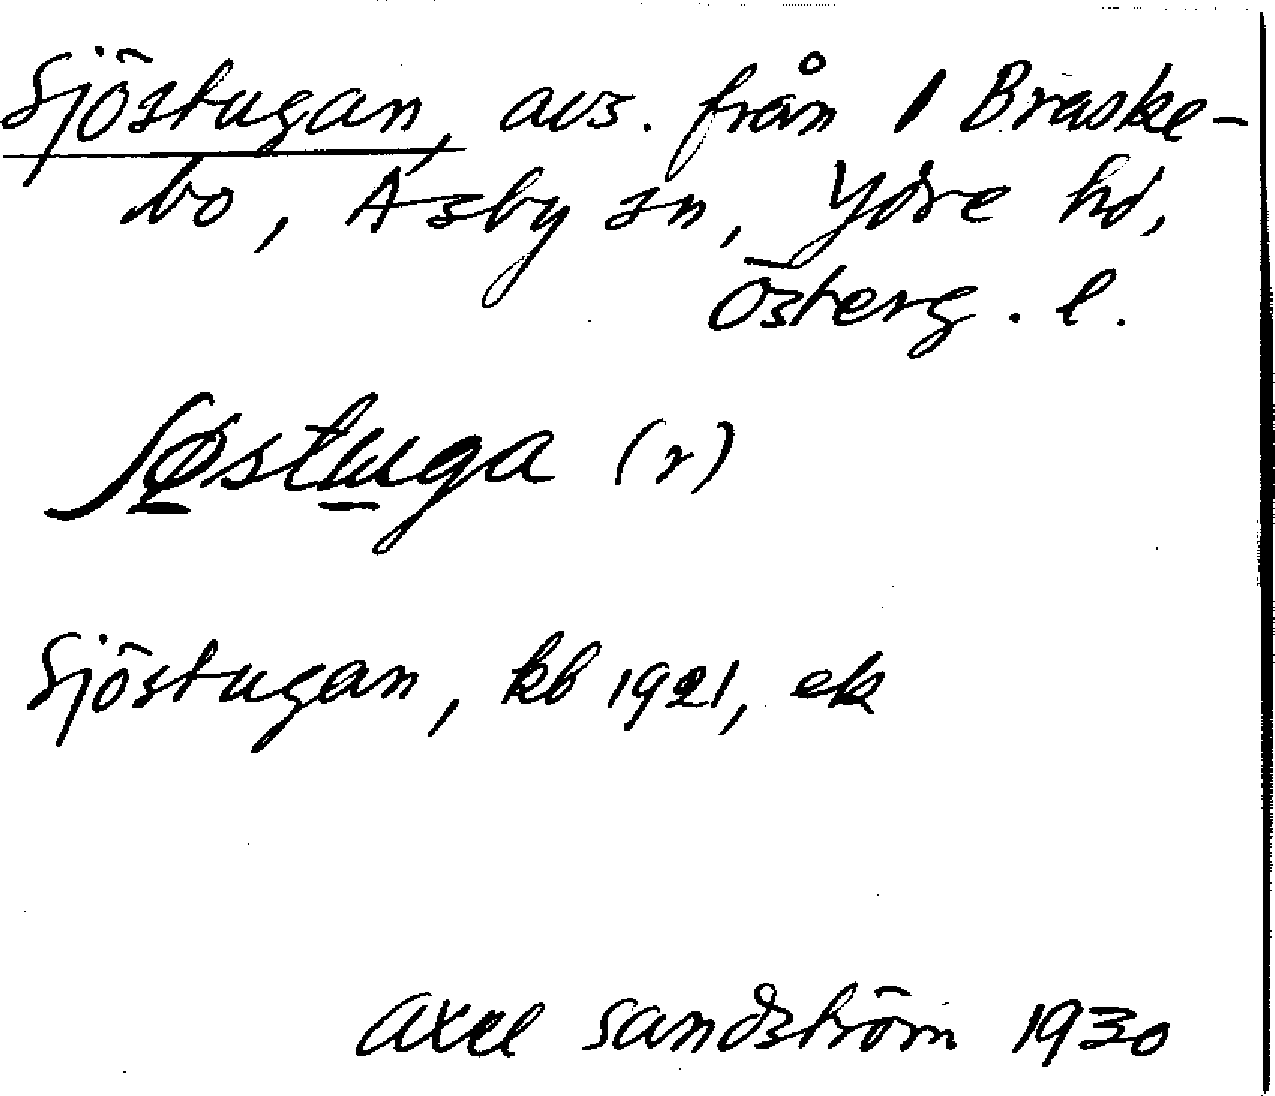 Sjöstugan, avs. från 1 Braske-
bo, Asby sn, Ydre hd,
Österg. l.
ʃøstuga (r)
Sjöstugan, kb 1921, ek
Axel Sandström 1930